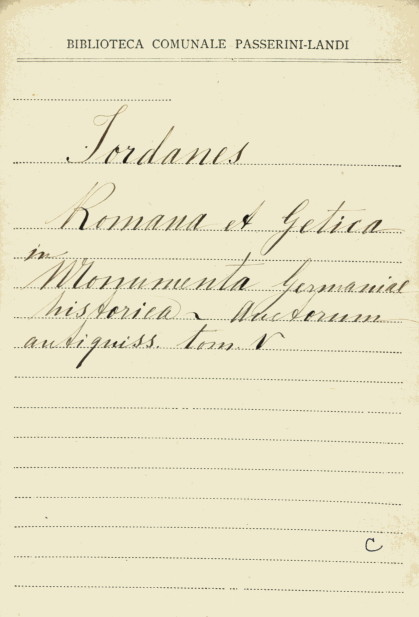 BIBLIOTECA COMUNALE PASSERINI-LANDI
Iordanes
Romana et Getica
in
Monumenta Germaniae
historica ~ Auctorum
antiquiss. tom. V
C